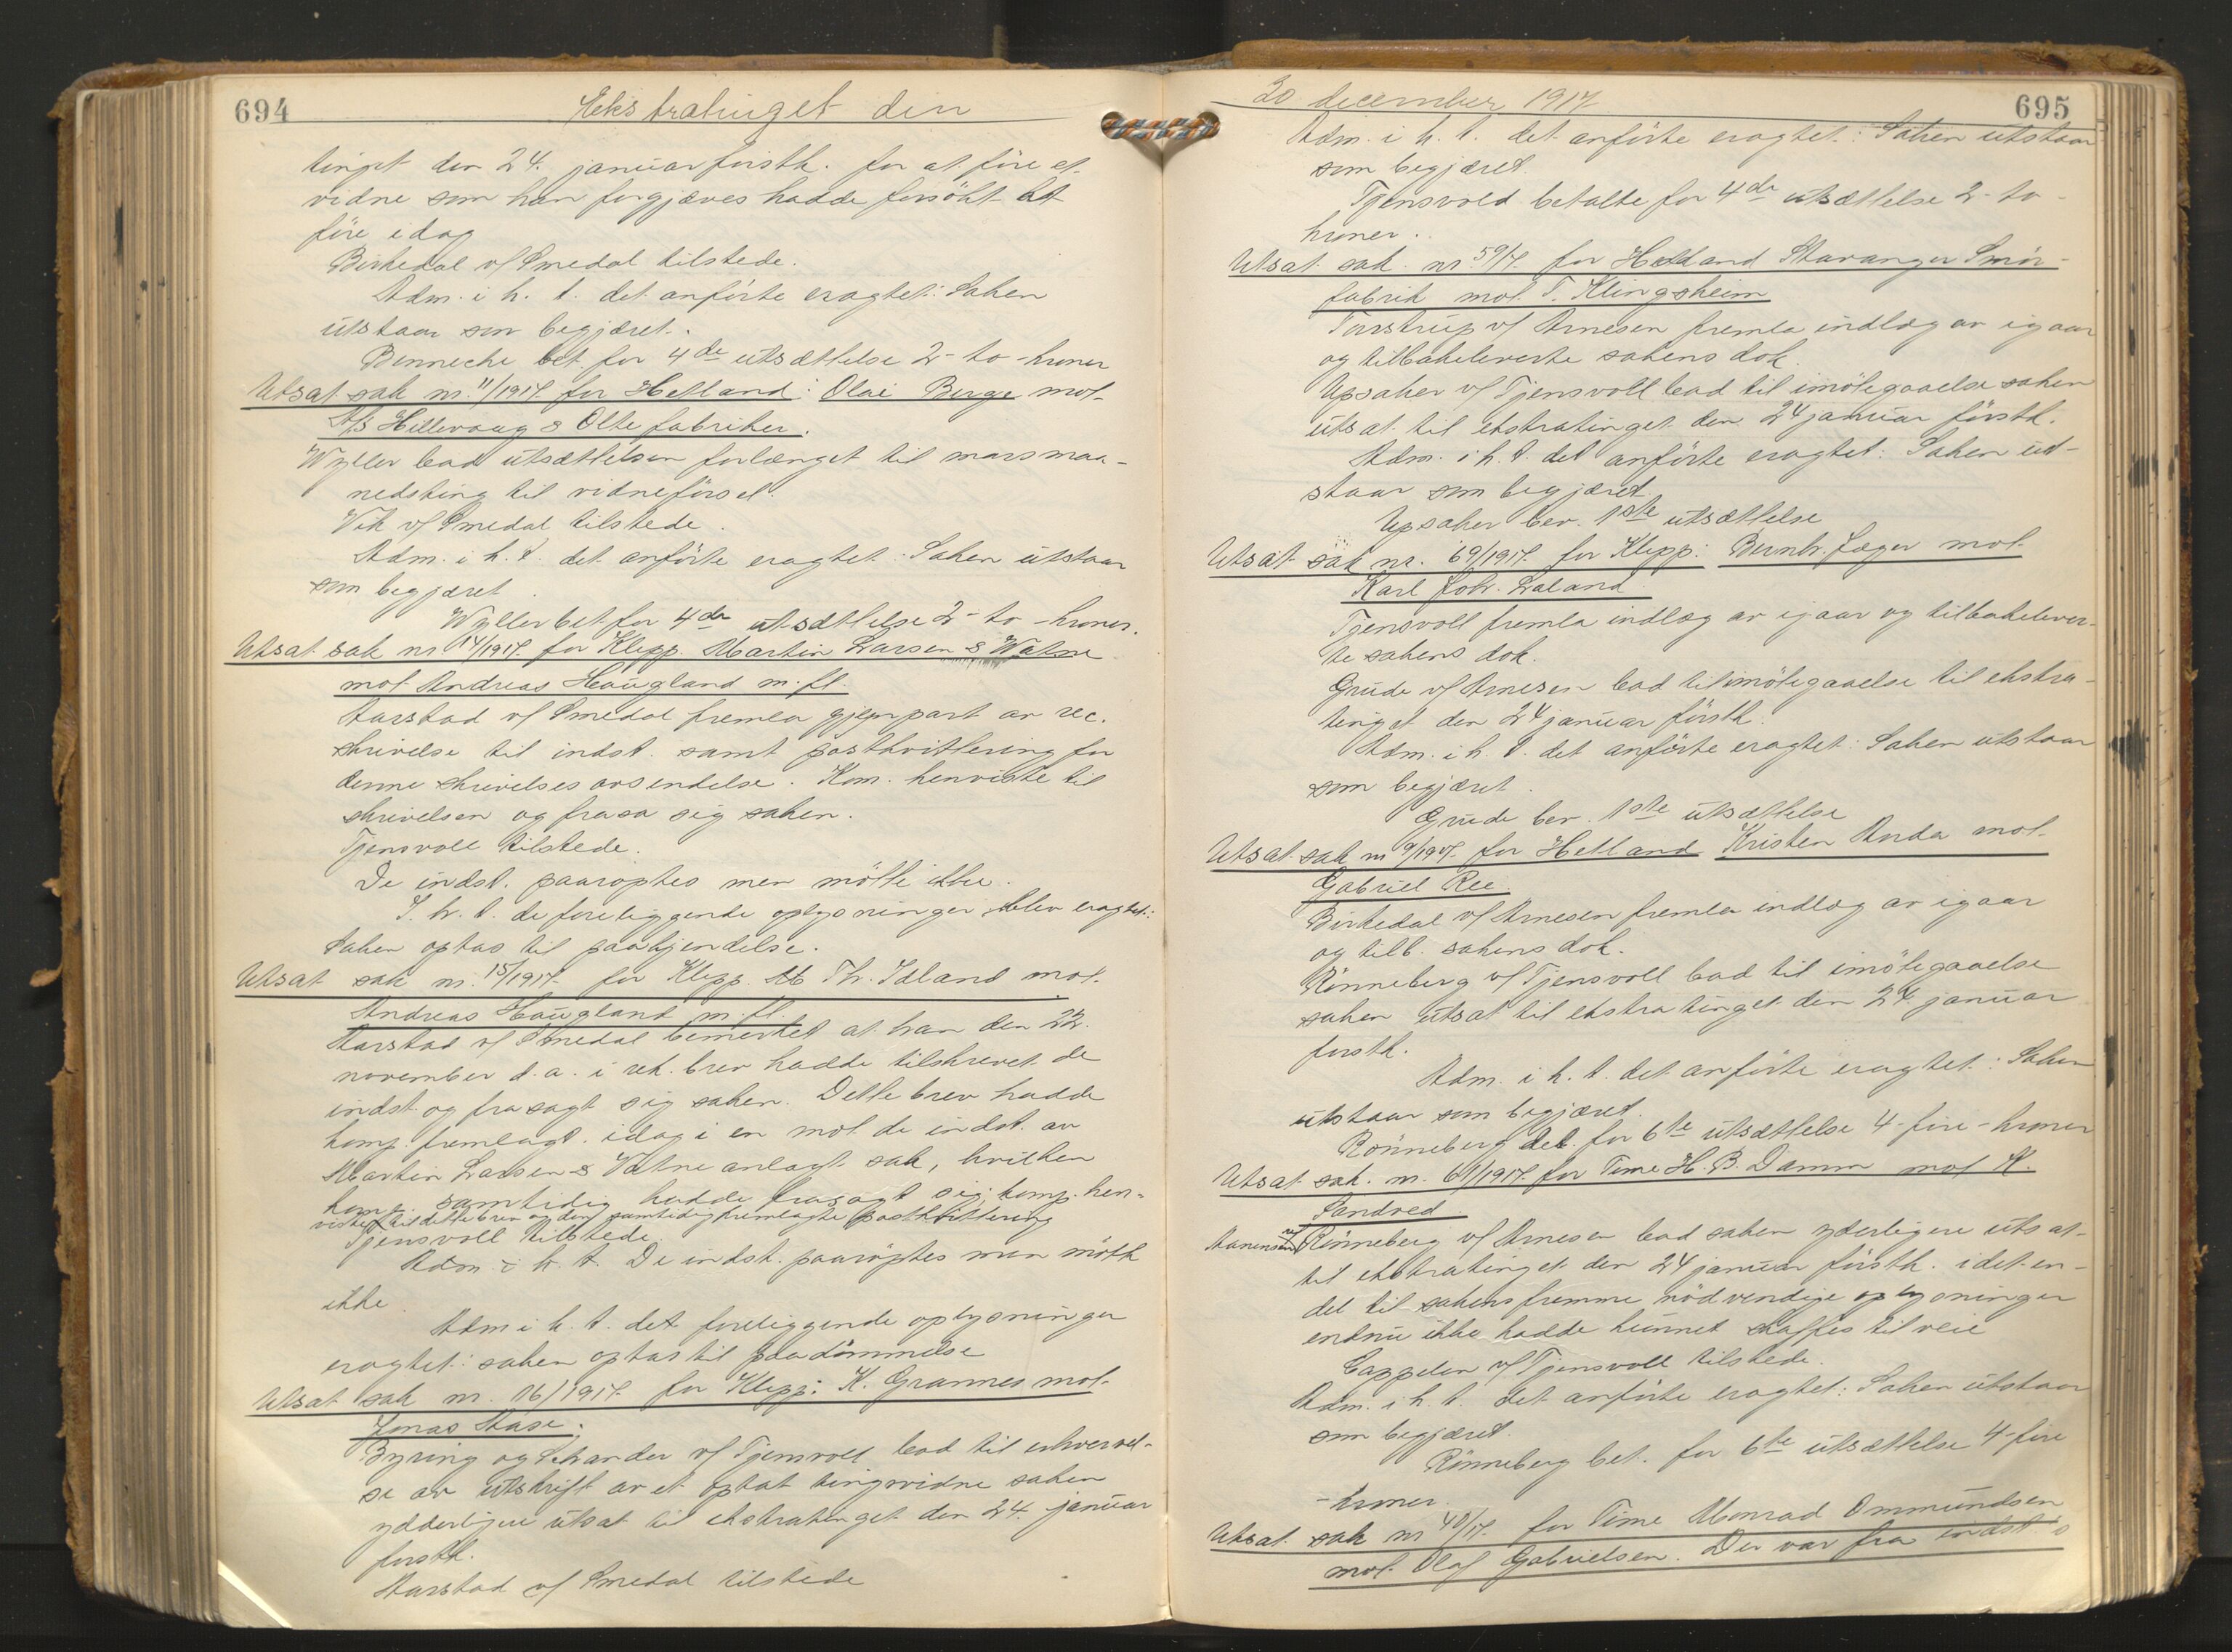 694
Ekstratinget den
tinget den 24. januar förstk. for at före et
vidne som han forgjæves hadde forsökt at
före idag
Birkedal v/ Smedal tilstede.
Adm. i h. t. det anförte eragtet: Saken
utstaar som begjæret.
Benneche bet. for 4de utsættelse 2 - to - kroner
Utsat sak nr. 11/1917. for Hetland: Olai Berge mot
A/S Hillevaag & Olte fabriker.
Wyller bad utsættelsen forlænget til marsmaa-
nedsting til vidneförsel.
Vik v/ Smedal tilstede.
Adm. i h. t. det anförte eragtet: Saken utstaar
som begjæret.
Wyller bet for 4de utsættelse 2 - to - kroner.
Utsat sak nr 14/1917. for Klepp. Martin Larsen & Watne
mot Andreas Haugland m. fl.
Aarstad v/ Smedal fremla gjenpart av rec.
skrivelse til indst. samt postkvittering for
denne skrivelses avsendelse. Kom. henviste til
skrivelsen og frasa sig saken.
Tjensvoll tilstede.
De indst. paaroptes men mötte ikke.
I. h. t. de foreliggende oplysninger blev eragtet:
Saken optas til paakjendelse.
Utsat sak nr. 15/1917. for Klepp. Th. Idland mot
Andreas Haugland m. fl.
Aarstad v/ Smedal bemerket at han den 22.
november d.a. i rek. brev hadde tilskrevet de
indst. og frasagt sig saken. Dette brev hadde
komp. fremlagt idag i en mot de indst. av
Martin Larsen & Vatne anlagt sak, hvilken
komp. samtidig hadde frasagt sig; komp. hen-
viste til dette brev og den samtidig fremlagte postkvittering
Tjensvoll tilstede.
Adm. i h. t. De indst. paaroptes men mötte
ikke.
Adm i h. t. det foreliggende oplysninger
eragtet: saken optas til paadömmelse
Utsat sak nr. 16/1917. for Klepp: K. Grannes mot
Jonas Aase.
Byring og Schander v/ Tjensvoll bad til erhvervel-
se av utskrift av et optat tingsvidne saken
ydderligere utsat til ekstratinget den 24. januar
förstk.
Aarstad v/ Smedal tilstede
30 december 1917.
695
Adm. i h. t. det anförte eragtet: Saken utstaar
som begjæret.
Tjensvold betalte for 4de utsættelse 2 - to -
kroner.
Utsat sak nr. 59/17. for Hetland Stavanger Smör-
fabrik mot T. Klingsheim
Torstrup v/ Arnesen fremla indlæg av igaar
og tilbakeleverte sakens dok.
Upsaker v/ Tjensvoll bad til imötegaaelse saken
utsat til ekstratinget den 24 januar förstk.
Adm. i h. t. det anförte eragtet: Saken ut-
staar som begjæret.
Upsaker bev. 1ste utsættelse
Utsat sak nr. 69/1917. for Klepp: Bernh. Jæger mot
Karl Joh. Laland
Tjensvoll fremla indlæg av igaar og tilbakelever-
te sakens dok.
Grude v/ Arnesen bad til imötegaaelse til ekstra-
tinget den 24 januar förstk.
Adm. i h. t. det anförte eragtet: Saken utstaar
som begjæret.
Grude bev. 1ste utsættelse
Utsat sak nr 9/1917. for Hetland Kristen Anda mot
Gabriel Ree.
Birkedal v/ Arnesen fremla indlæg av igaar
og tilb. sakens dok.
Rönneberg v/ Tjensvoll bad til imötegaaelse
saken utsat til ekstratinget den 24. januar
förstk.
Adm. i h. t. det anförte eragtet: Saken
utstaar som begjæret.
Rönneberg bet. for 6te utsættelse 4 - fire - kroner
Utsat sak. nr. 61/1917. for Time H. B. Damm mot K.
Sandved.
Rönneberg v/ Arnesen bad saken yderligere utsat
til ekstratinget den 24 januar förstk. idet en-
del til sakens fremme nödvendige oplysninger
endnu ikke hadde kunnet skaffes tilveie
Cappelen v/ Tjensvoll tilstede.
Adm. i h. t. det anförte eragtet: Saken utstaar
som begjæret.
Rönneberg bet. for 6te utsættelse 4 - fire
- kroner.
Utsat sak nr 40/17. for Time Monrad Ommundsen
mot Olaf Gabrielsen. Der var fra indst's